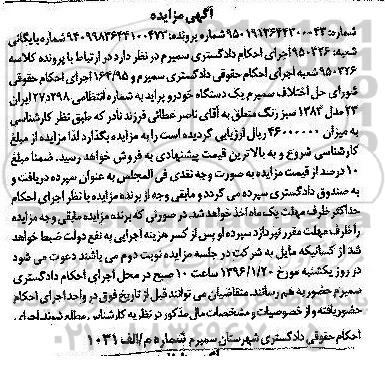 آگهی مزایده
شماره: ۹۵۰۱۹۱۳۶۴۴۳۰۰۰۴۳ شماره پرونده: ۹۴۰۹۹۸۳۶۴۴۱۰۰۴۷۳ شماره بایگانی
شعبه: ۹۵۰۳۲۶ اجرای احکام دادگستری سمیرم در نظر دارد در ارتباط با پرونده کلاسه
۹۵۰۳۲۶ شعبه اجرای احکام حقوقی دادگستری سمیرم و ۱۶۴/۹۵ اجرای احکام حقوقی
شورای حل اختلاف سمیرم یک دستگاه خودرو پراید به شماره انتظامی ۳۹۸د۲۷ ایران
۲۳ مدل ۱۳۸۳ سبز رنگ متعلق به آقای ناصر عطائی فرزند نادر که طبق نظر کارشناسی
به میزان ۴۶۰۰۰۰۰۰ ریال ارزیابی گردیده است را به مزایده بگذارد لذا مزایده از مبلغ
کارشناسی شروع و به بالاترین قیمت پیشنهادی به فروش خواهد رسید. ضمنا مبلغ
۱۰ درصد از قیمت مزایده به صورت وجه نقدی فی المجلس به عنوان سپرده دریافت و
به صندوق دادگستری سپرده می گردد و مابقی وجه از برنده مزایده با نظر اجرای احکام
حداکثر ظرف مهلت یک ماه اخذ خواهد شد در صورتی که برنده مزایده مابقی وجه مزایده
را ظرف مهلت مقرر نپردازد سپرده او پس از کسر هزینه اجرایی به نفع دولت ضبط خواهد
شد از کسانیکه مایل به شرکت در جلسه مزایده نوبت دوم می باشند دعوت می شود
در روز یکشنبه مورخ ۱۳۹۶/۱/۲۰ ساعت ۱۰ صبح در محل اجرای احکام دادگستری
سمیرم حضور به هم رسانند. متقاضیان می توانند قبل از تاریخ فوق در واحد اجرای احکام
حضور یافته و از خصوصیات و مشخصات مال مذکور در نظریه کارشناسی مطلع شوند. اجرای
احکام حقوقی دادگستری شهرستان سمیرم شماره م/الف ۱۰۳۱